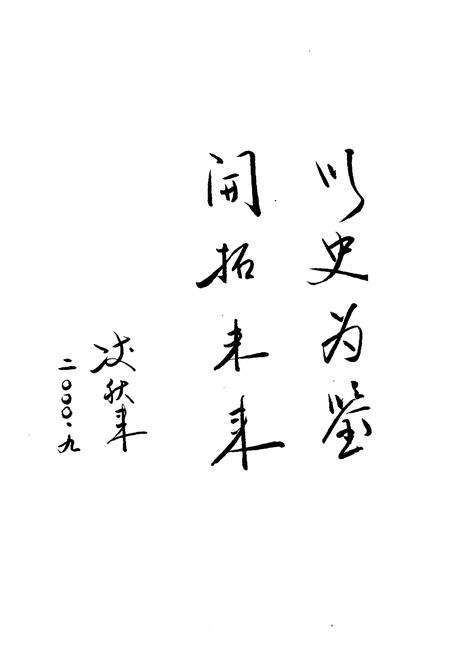 以史为鉴
開拓未来
凌秋来
二〇〇〇·九